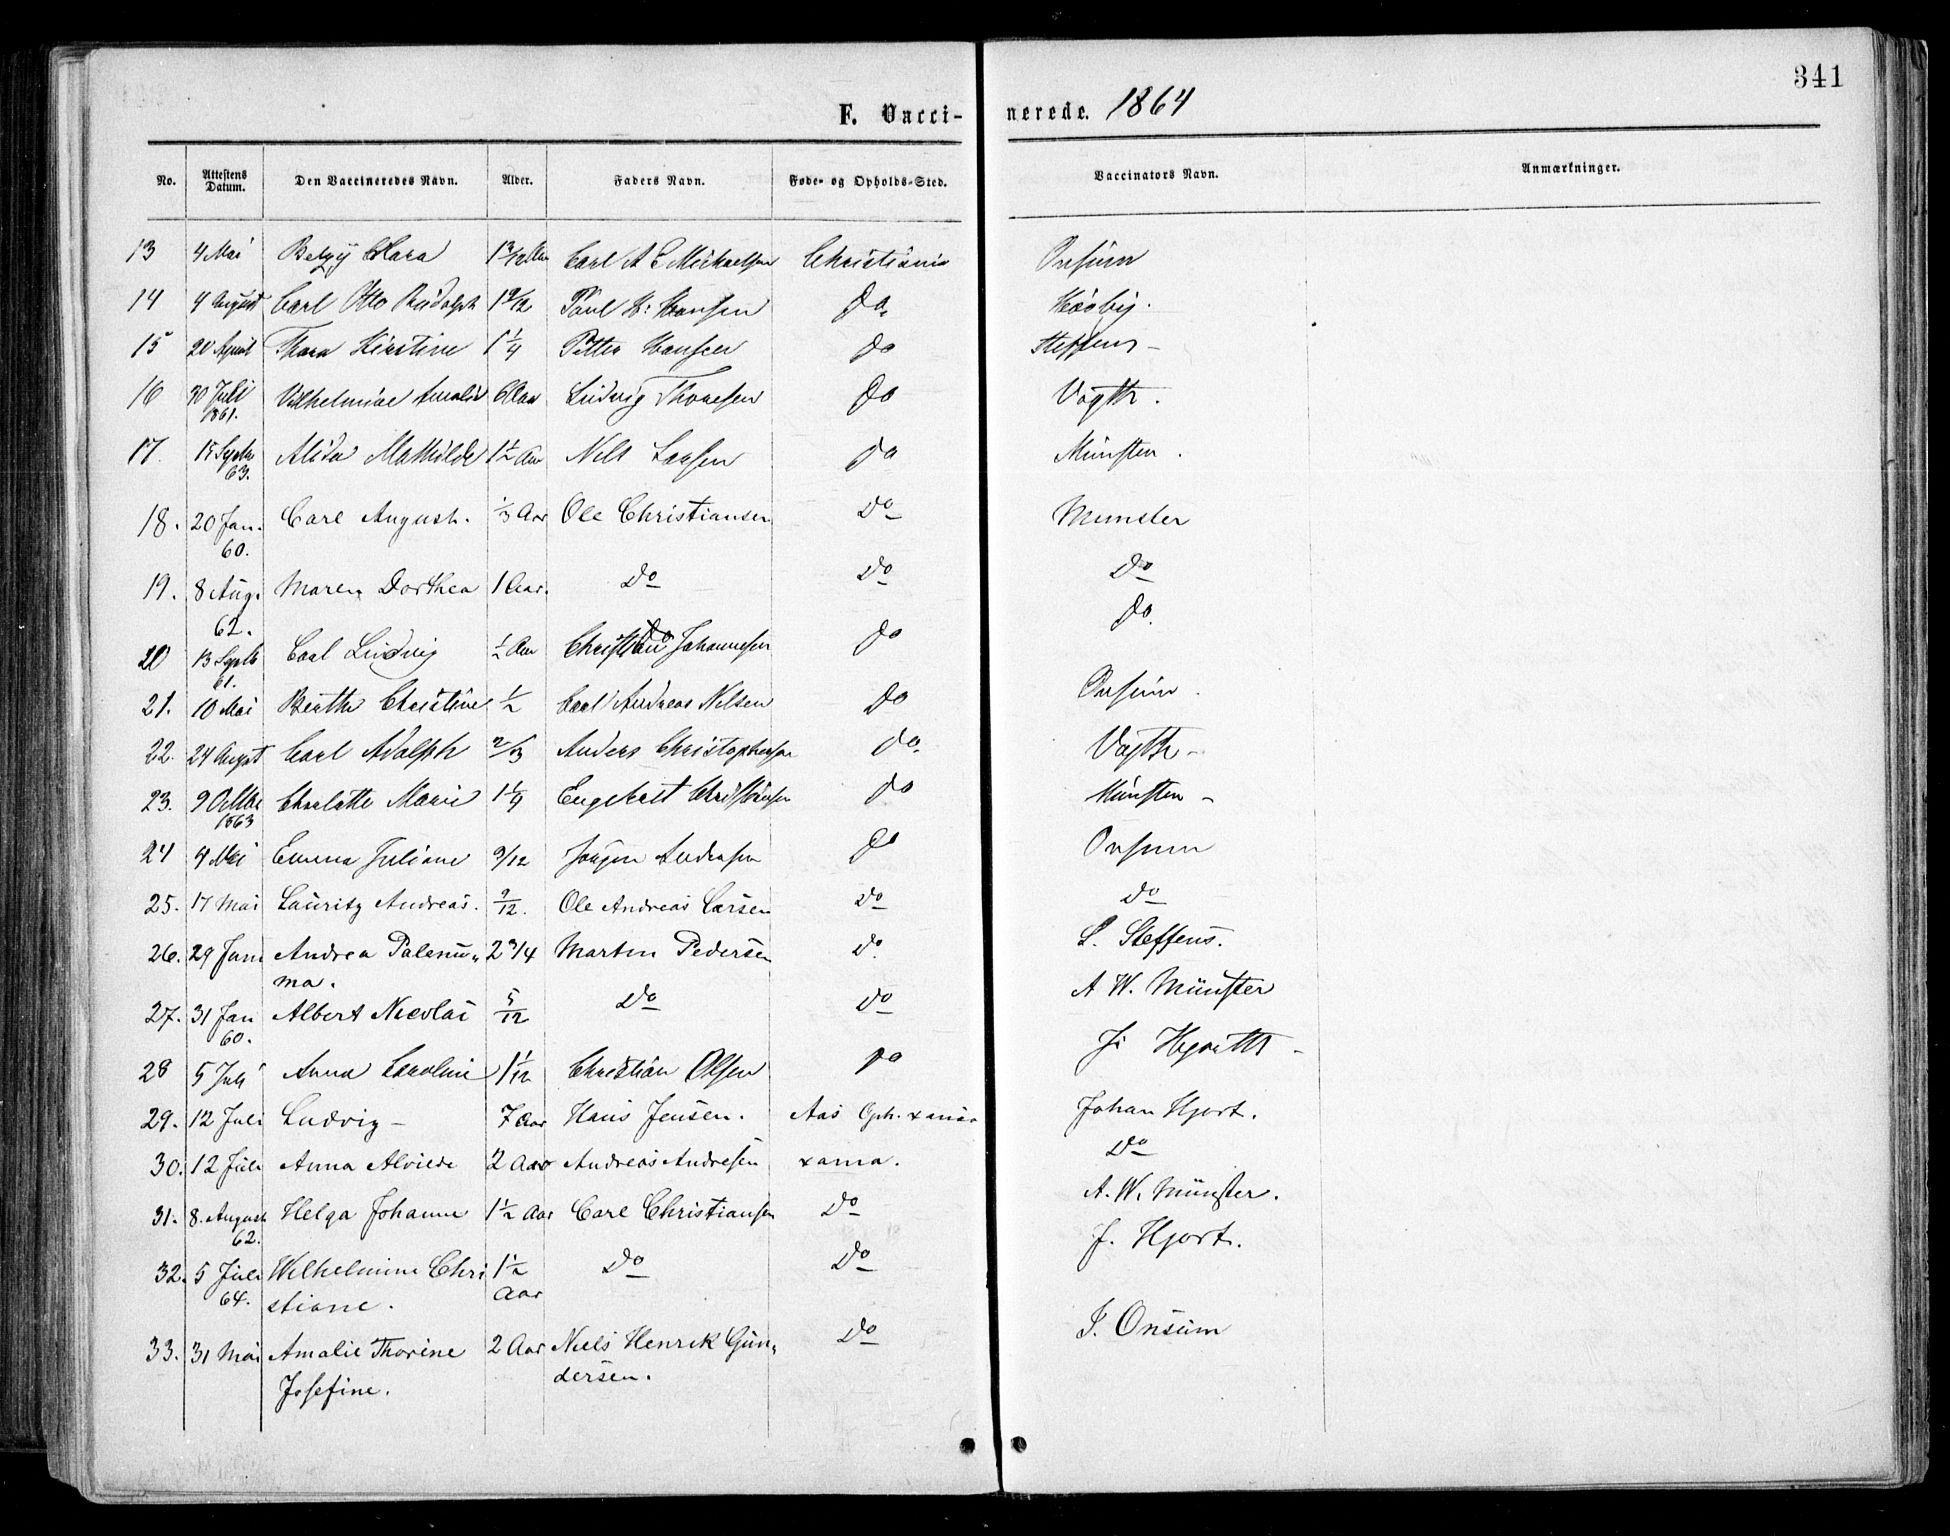 341
F. Vacci- nerede. 1864
No. Attestens Datum. Den Vaccineredes Navn. Alder. Faders Navn. Føde- og Opholds-Sted. Vaccinators Navn. Anmærkninger.
13 4 Mai Betzy Clara Carl A C Michaelsen Christiania Onsum
14 4 August Carl Otto Rudolph Poul H. Hansen Do
15 20 August Thora Kirstine 1 1/4 Petter Hansen Do Steffens
16 30 Juli 1861. Vilhelmine Amalie 6 Aar Ludvig Thoresen Do Vogth.
17. 15 Septbr 63. Alida Mathilde 1 1/2 Aar Nils Larsen Do Münster.
18. 20 Jan. 60. Carl August. 1/3 Aar Ole Christiansen Do Munster
19. 8 Aug. 62. Maren Dorthea 1 Aar. Do Do Do
20 13 Septb 61. Carl Ludvig 1/2 Aar Christian Johannesen Do Do.
21. 10 Mai Berthe Christine 1/2 Carl Andreas Nilsen Do Onsum.
22. 24 August Carl Adolph 2/3 Anders Christophersen Do. Vogth
23. 9 Octbr 1863 Charlotte Marie 1 1/4 Engebret Christiansen Do Münster
24 4 Mai Emma Juliane 9/12 Jørgen Andersen Do Onsum
25. 17 Mai Lauritz Andreas. 9/12. Ole Andreas Larsen Do Do
26. 29 Juni Andrea Palenu„ 2 3/4 Martin Pedersen Do. L. Steffens.
ma.
27. 31 Jan 60. Albert Nicolai 5/12 Do Do A W. Münster
28 5 Juli Anna Caroline 1 1/12 Christian Olsen Do
29. 12 Juli Ludvig 7 Aar Hans Jensen. Aas Oph. xania Johan Hjort.
30. 12 Juli Anna Alvilde 2 Aar Andreas Andresen xania. Do
31. 8. August 62. Helga Johanne 1 1/2 Aar Carl Christiansen Do A. W. Münster.
32. 5 Juli 64. Wilhelmine Chri 1 1/2 Aar Do Do J. Hjort.
stiane.
33. 31 Mai Amalie Thorine 2 Aar Niels Henrik Gun„ Do J. Onsum
Josefine. dersen.